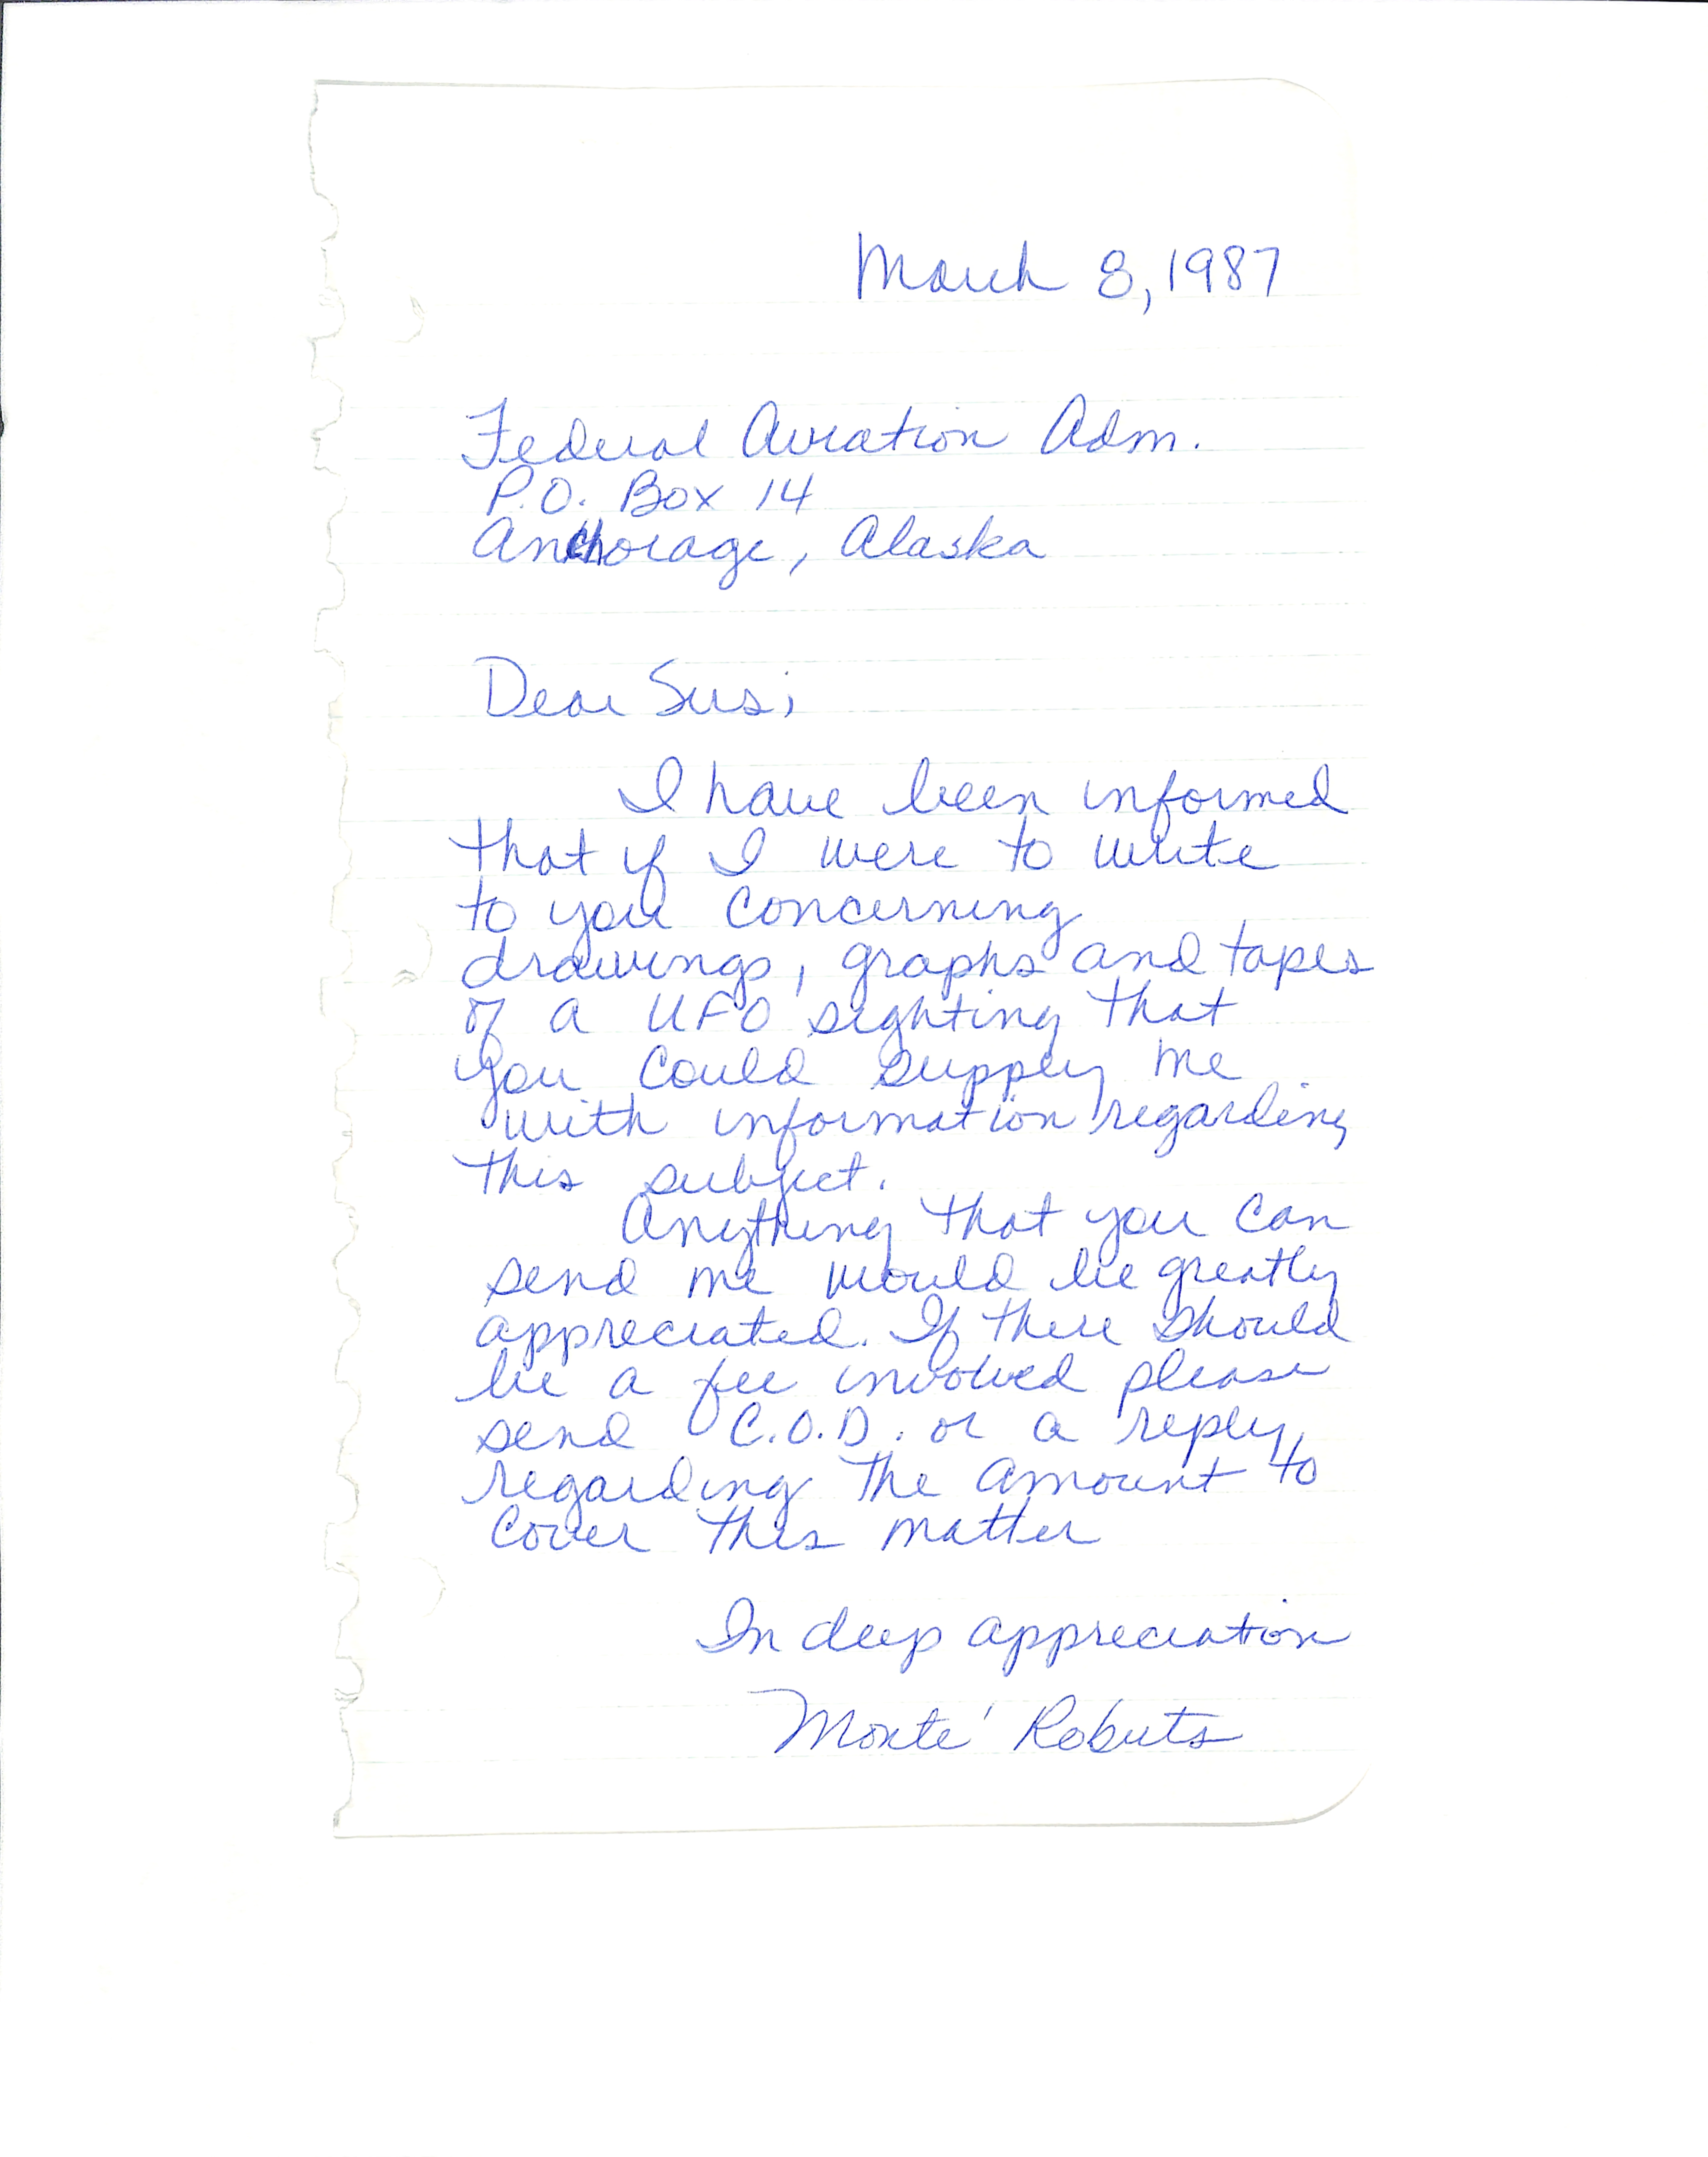 March 8, 1987
Federal Aviation Adm.
P.O. Box 14
Anchorage, Alaska
Dear Sirs;
I have been informed
that if I were to write
to you concerning
drawings, graphs and tapes
of a UFO sighting that
you could supply me
with information regarding
this subject.
Anything that you can
send me would be greatly
appreciated. If there should
be a fee involved please
send C.O.D. or a reply
regarding the amount to
cover this matter
In deep appreciation
Monte' Roberts